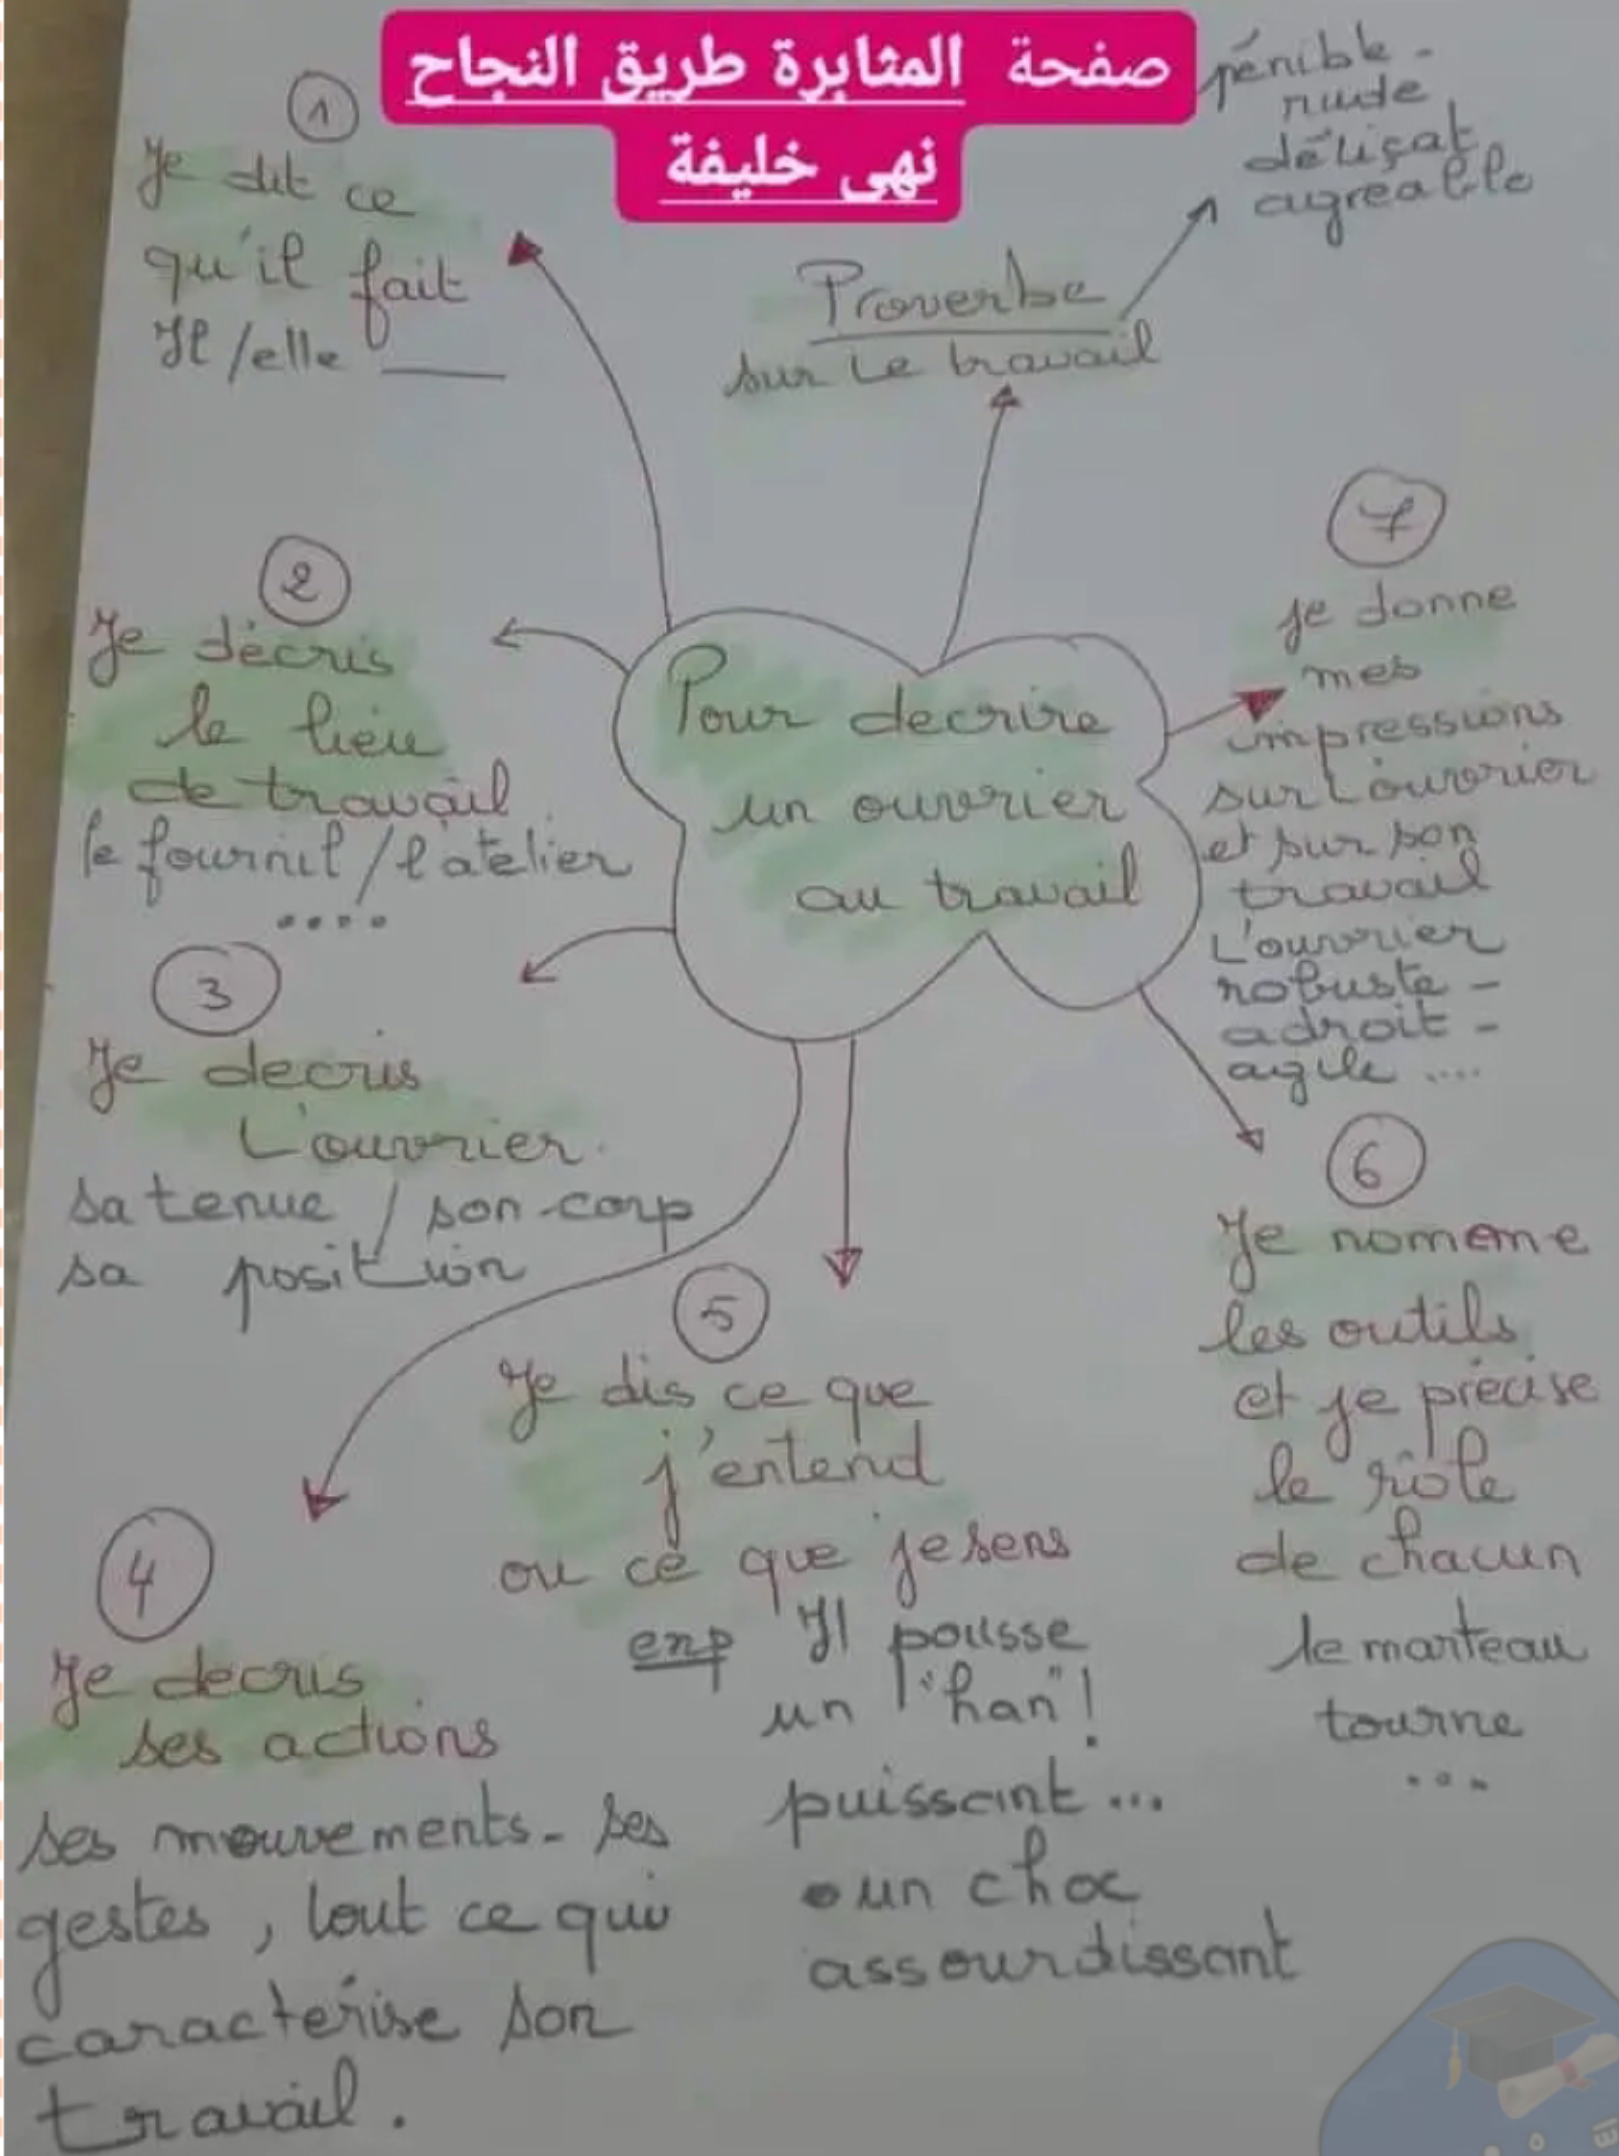 صفحة المثابرة طريق النجاح
نهى خليفة
1
Je dit ce
qu'il fait
Il/elle
pénible -
rude
déliçat
agreable
Proverbe
sur Le travail
Pour decrire
un ouvrier
au travail
2
Je décris
le lieu
de travail
le fournil/l'atelier
....
3
Je decris
L'ouvrier.
sa tenue / son corp
sa position
4
Je decris
ses actions
ses mouvements - ses
gestes, tout ce qui
caractérise son
travail.
5
Je dis ce que
j'entend
ou ce que je sens
exp Il pousse
un "han"!
puissant...
un choc
assourdissant
6
Je nomeme
les outils
et je précise
le rôle
de chacun
le marteau
tourne
...
7
je donne
mes
impressions
sur L'ouvrier
et sur son
travail
L'ouvrier
robuste -
adroit -
agile ....